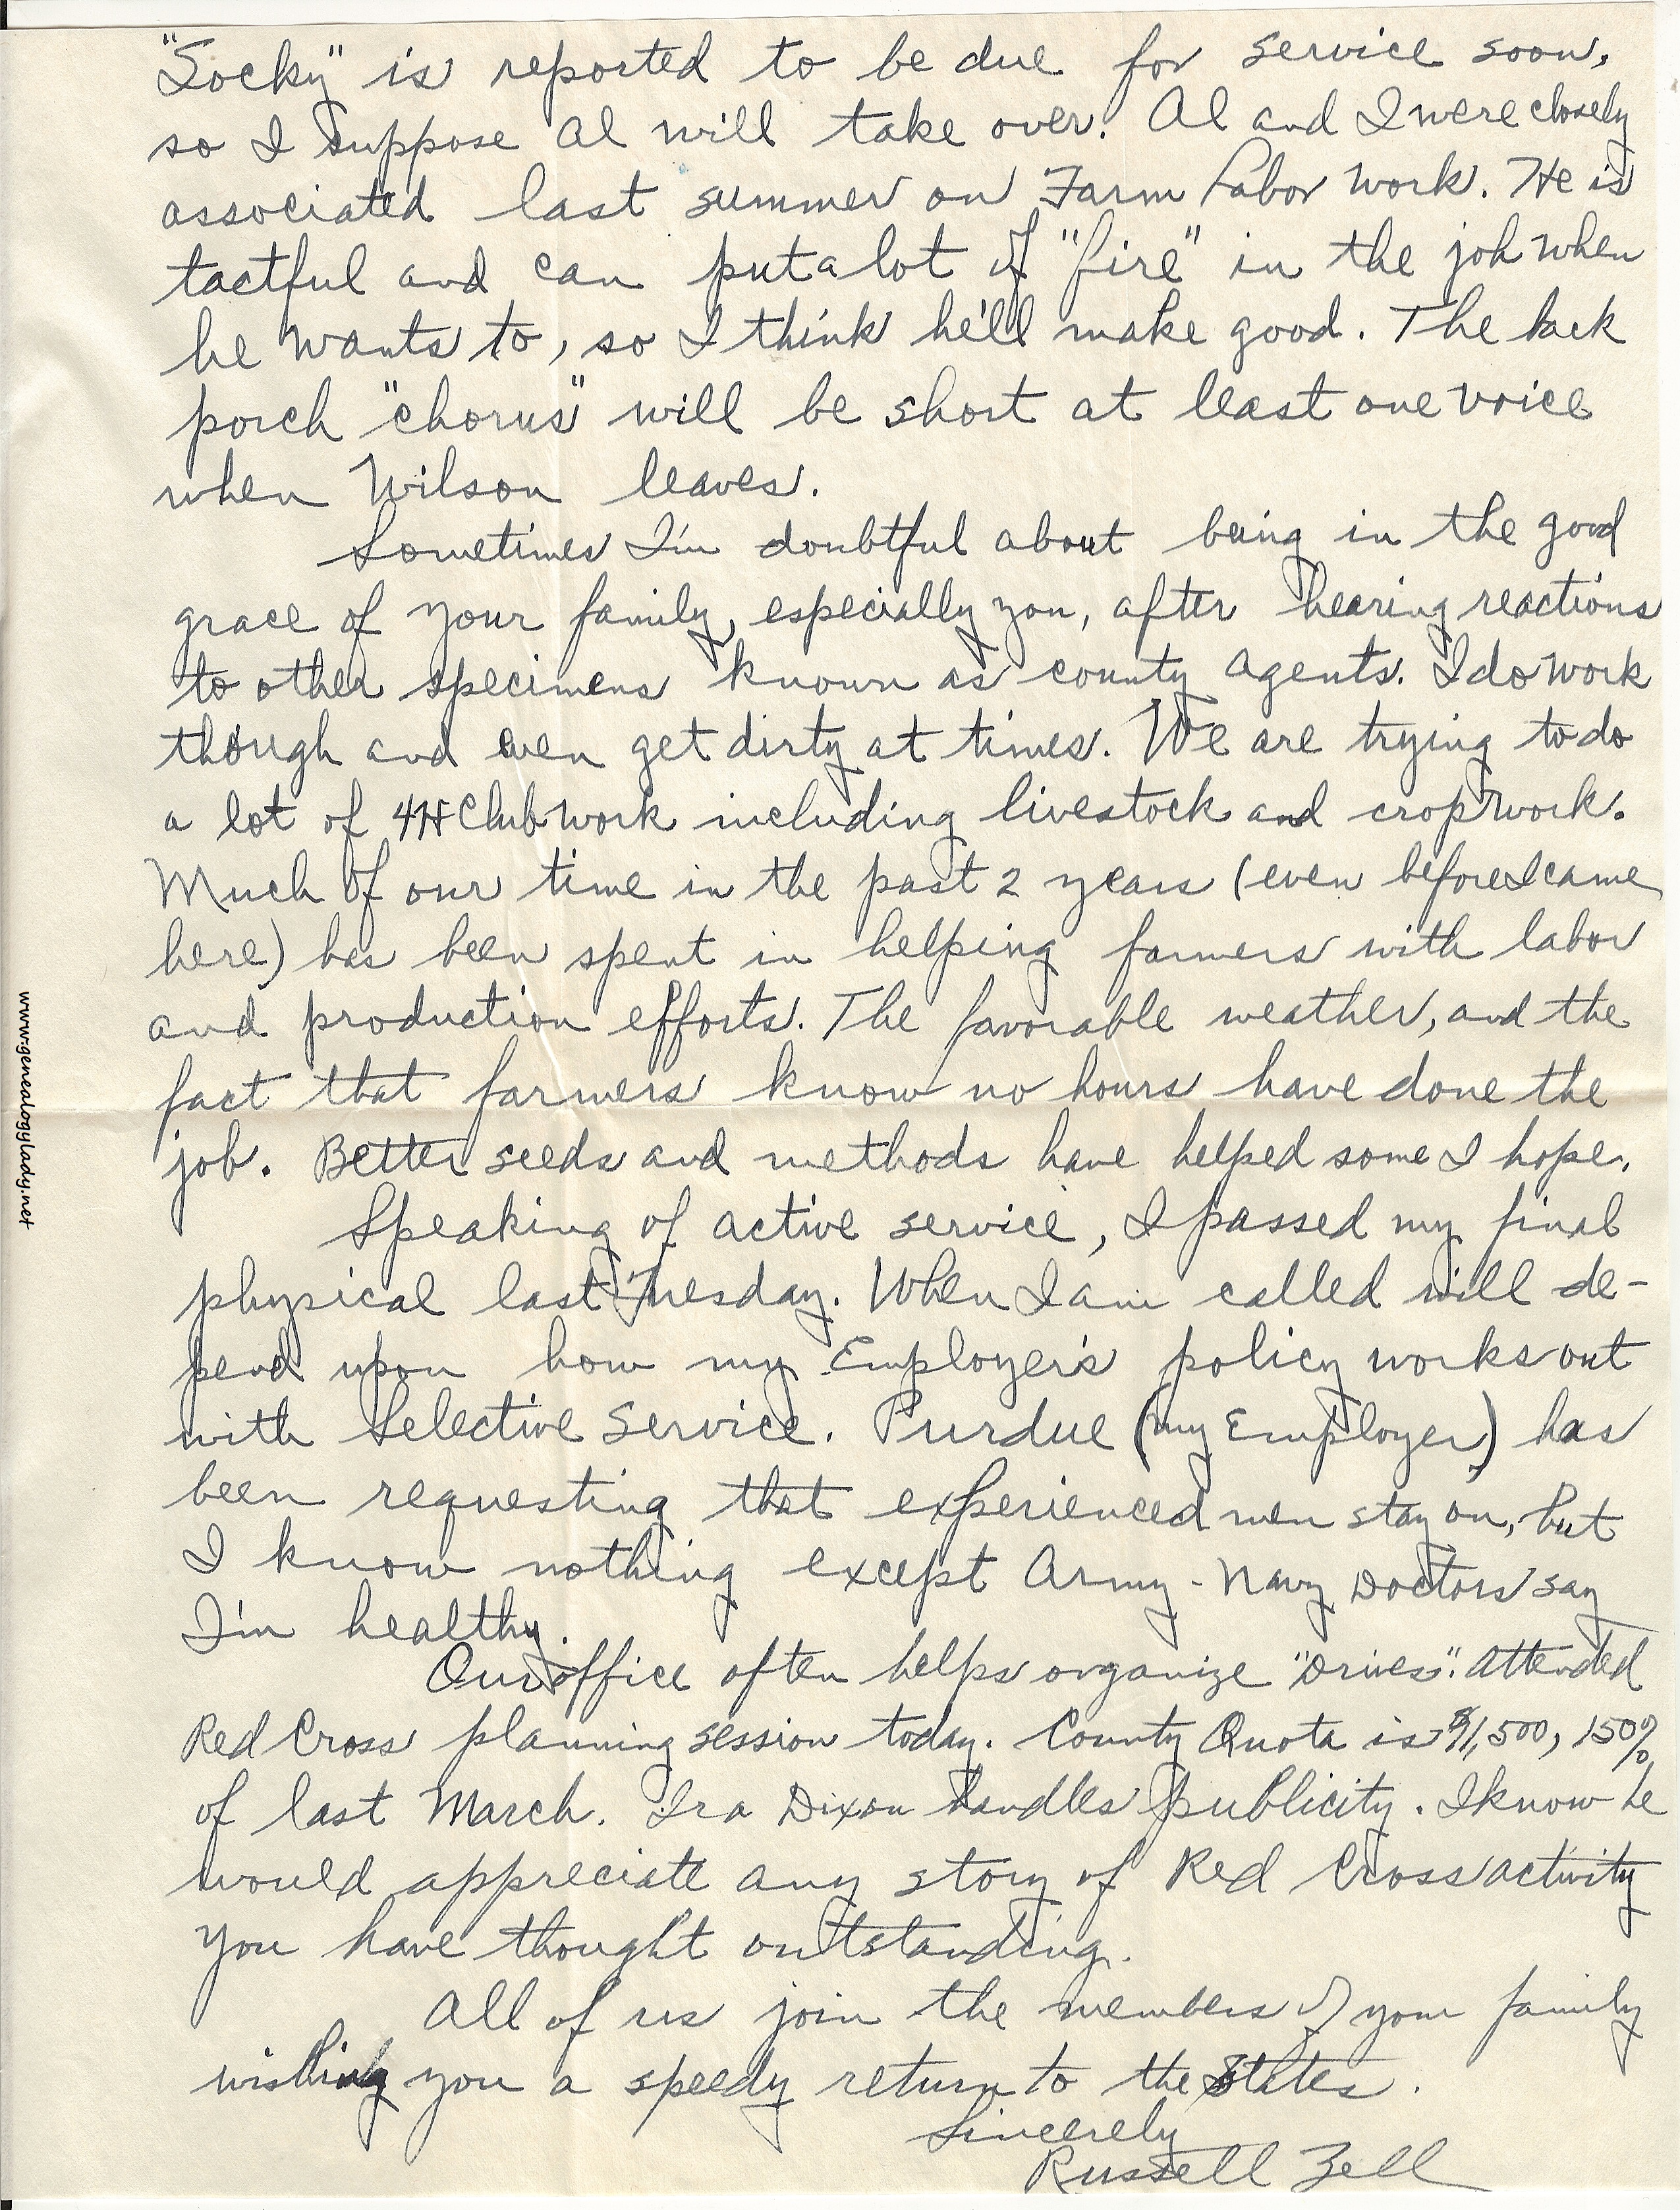 "Socky" is reported to be due for service soon,
so I suppose Al will take over. Al and I were closely
associated last summer on Farm Labor Work. He is
tactful and can put a lot of "fire" in the job when
he wants to, so I think he'll make good. The back
porch "chorus" will be short at least one voice
when Wilson leaves.
Sometimes I'm doubtful about being in the good
grace of your family, especially you, after hearing reactions
to other specimens known as county agents. I do work
though and even get dirty at times. We are trying to do
a lot of 4H Club work including livestock and crop work.
Much of our time in the past 2 years (even before I came
here) has been spent in helping farmers with labor
and production efforts. The favorable weather, and the
fact that farmers know no hours have done the
job. Better seeds and methods have helped some I hope.
Speaking of active service, I passed my final
physical last Tuesday. When I am called will de-
pend upon how my Employer's policy works out
with Selective Service. Purdue (my Employer) has
been requesting that experienced men stay on, but
I know nothing except Army-Navy Doctors say
I'm healthy.
Our office often helps organize "Drives". Attended
Red Cross planning session today. County Quota is 150%
of last March. Ira Dixon handles publicity. I know he
would appreciate any story of Red Cross activity
you have thought outstanding.
All of us join the members of your family
wishing you a speedy return to the States.
Sincerely
Russell Zell
www.genealogylady.net